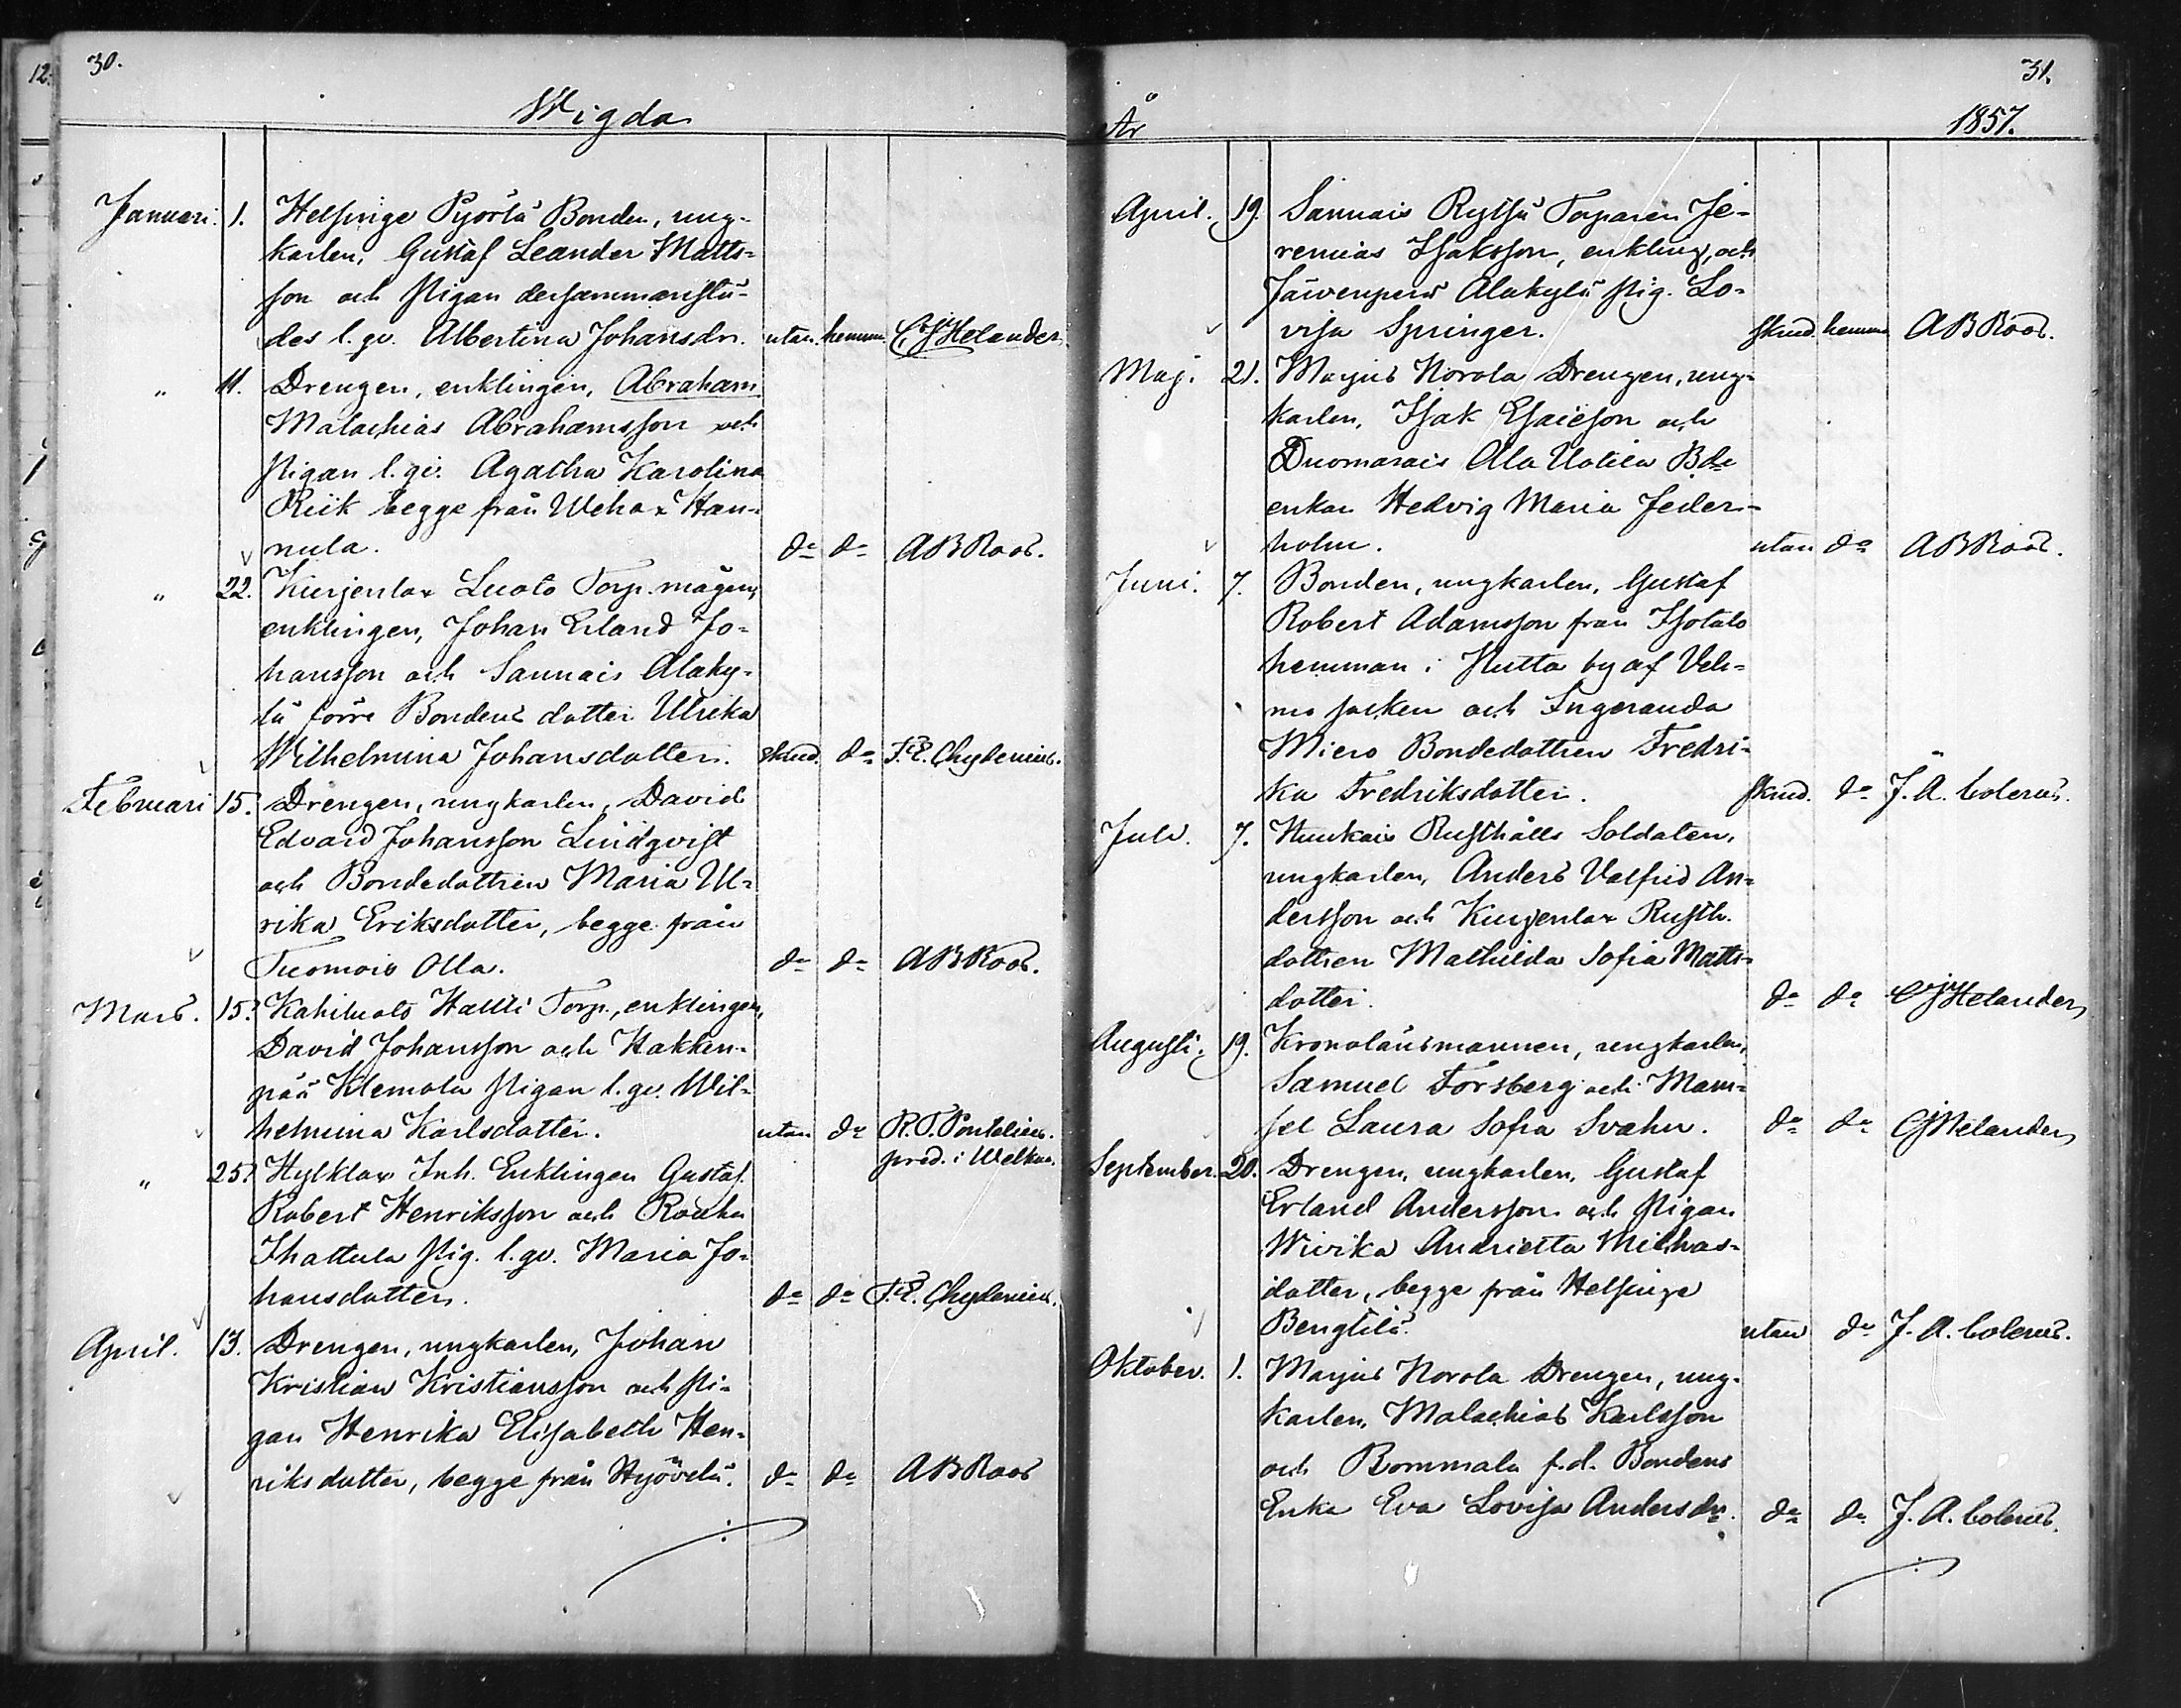 30.
Wigda
Januari. 1. Helsinge Pyörlä Bonden, ung-
karlen, Gustaf Leander Matts-
son och Pigan dersammanstä-
des l. qv. Albertina Johansdr. utan. hemma. CJHelander.
" 11. Drengen, enklingen, Abraham
Malachias Abrahamsson och
Pigan l. qv. Agatha Karolina
Riik begge från Wehax Han-
nula. do do ABRoos.
" 22. Kurjenlax Luoto Torp. mågen,
enklingen, Johan Erland Jo-
hansson och Sannais Alaky-
lä förre Bondens dotter Ulrika
Wilhelmina Johansdotter. skud. do F.E. Chydenius.
Februari 15. Drengen, ungkarlen, David
Edvard Johansson Lindqvist
och Bondedottren Maria Ul-
rika Eriksdotter, begge från
Tuomois Olla. do do ABRoos.
Mars. 15. Kahiluoto Hallti Torp., enklingen,
David Johansson och Hakken-
pää Klemola Pigan l. qv. Wil-
helmina Karlsdotter. utan do R.T. Pontelius.
pred. i Welkua.
" 25. Hylklax Inh. Enklingen Gustaf
Robert Henriksson och Rauhu
Ihattula Pig. l. qv. Maria Jo-
hansdotter. do do F.E. Chydenius.
April. 13. Drengen, ungkarlen, Johan
Kristian Kristiansson och Pi-
gan Henrika Elisabeth Hen-
riksdotter, begge från Hyövelä. do do ABRoos
31.
År 1857.
April. 19. Sannais Rytsä Torparen Je-
remias Isaksson, enkling, och
Järvenperä Alakylä Pig. Lo-
visa Springer. skud. hemma ABRoos.
Maj. 21. Marjus Norola Drengen, ung-
karlen, Isak Esaieson och
Duomarais Ala Uotila Bde
enkan Hedvig Maria Feder-
holm. utan do ABRoos.
Juni. 7. Bonden, ungkarlen, Gustaf
Robert Adamsson från Isotalo
hemman i Hutta by af Veh-
mo socken och Ingeranda
Miero Bondedottren Fredri-
ka Fredriksdotter. skud. do J. A. Colerus.
Juli. 7. Hunkais Rusthålls Soldaten,
ungkarlen, Anders Valfrid An-
dersson och Kurjenlax Rusth.
dottren Mathilda Sofia Matts-
dotter. do do CJHelander
Augusti. 19. Kronolänsmannen, ungkarlen,
Samuel Forsberg och Mam-
sel Laura Sofia Svahn. do do CJHelander
September. 20. Drengen, ungkarlen, Gustaf
Erland Andersson och Pigan
Wivika Andrietta Michas-
dotter, begge från Helsinge
Bengtilä. utan do J. A. Colerus.
Oktober. 1. Marjus Norola Drengen, ung-
karlen, Malachias Karlsson
och Rommala f.d. Bondens
Enka Eva Lovisa Andersdr. do do J. A. Colerus.